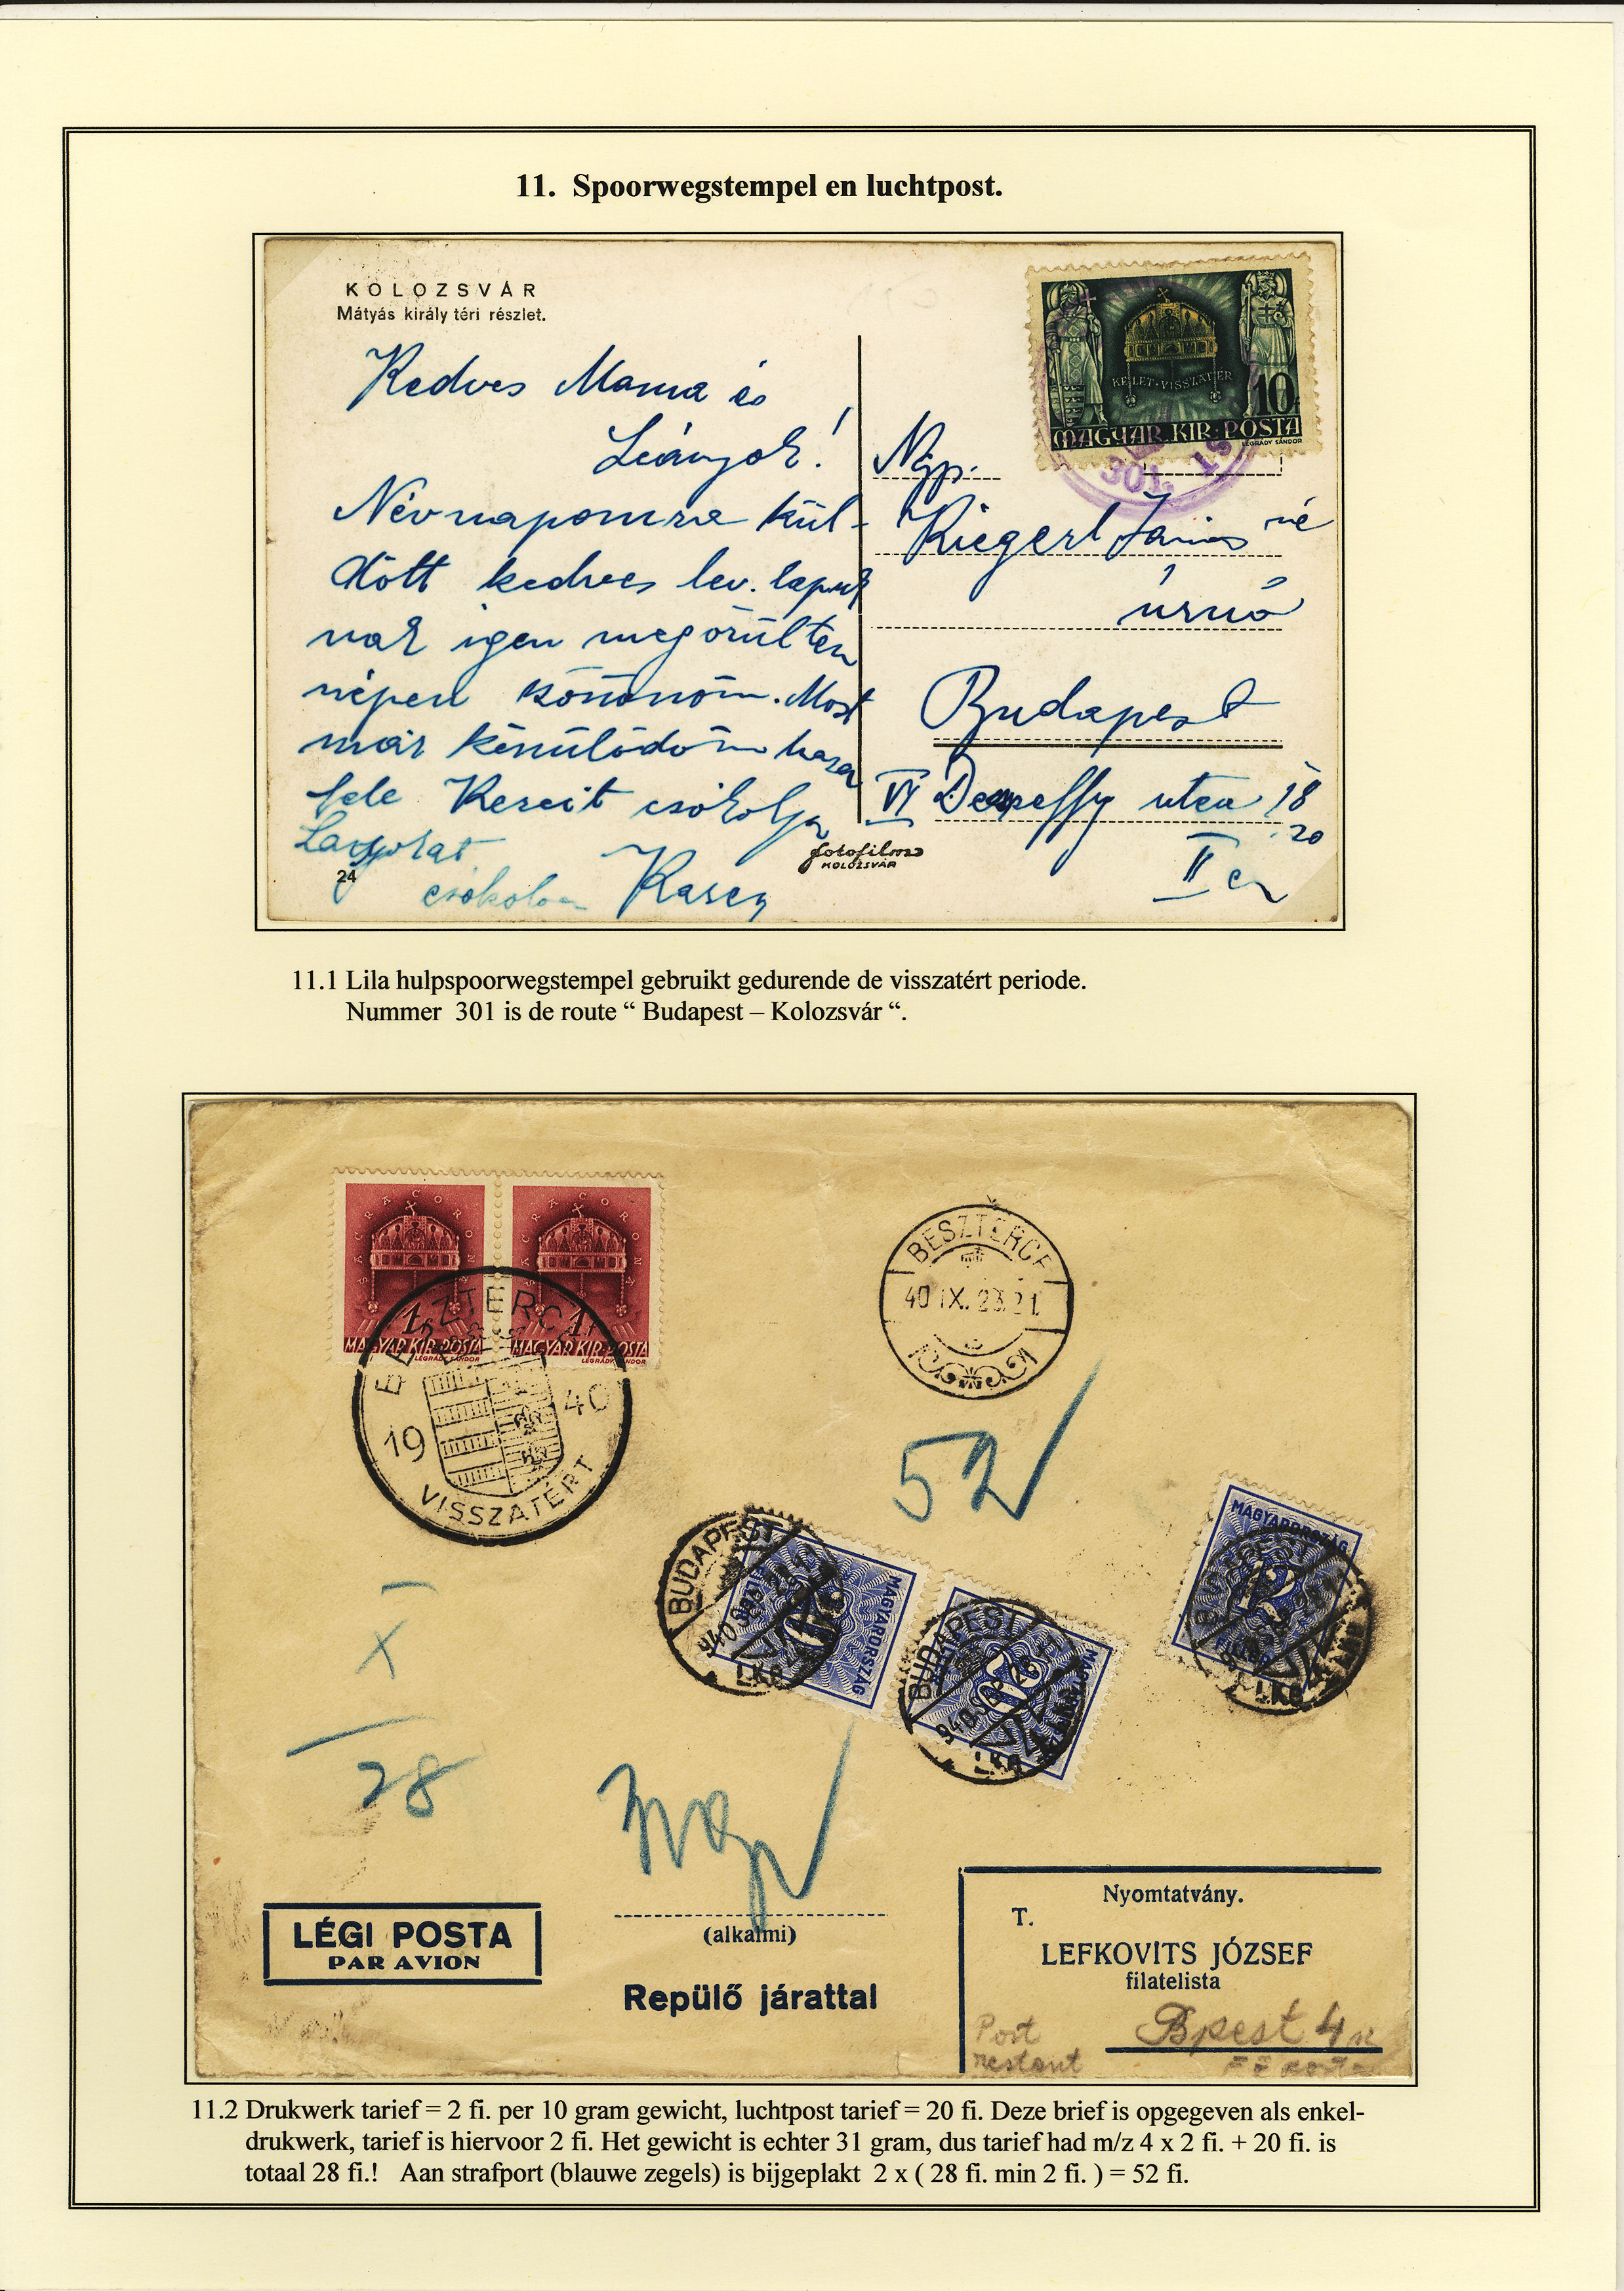 11. Spoorwegstempel en luchtpost.
KOLOZSVÁR
Mátyás király téri részlet.
KELET·VISSZATÉR
10
MAGYAR·KIR·POSTA
LÉGRÁDY SÁNDOR
301.
Kedves Mama és
Leányok!
Névnapomra kül-
dött kedves lev. lapjuk
nak igen megörültem
szépen köszönöm. Most
már készülődöm haza
fele Kezeit csókolja
csókolom
24
fotofilm
KOLOZSVÁR
Riegerl János né
úrnő
Budapest
VI Dessewffy utca 18
20
II em
11.1 Lila hulpspoorwegstempel gebruikt gedurende de visszatért periode.
Nummer 301 is de route “ Budapest – Kolozsvár “.
SACRA CORONA
SACRA CORONA
1f
1f
MAGYAR·KIR·POSTA
MAGYAR·KIR·POSTA
LÉGRÁDY SÁNDOR
LÉGRÁDY SÁNDOR
BESZTERCE
19 40
VISSZATÉRT
BESZTERCE
40 IX. 23. 21.
52
MAGYARORSZÁG
20
BUDAPEST
MAGYARORSZÁG
20
BUDAPEST
MAGYARORSZÁG
12
FILLÉR
BUDAPEST
X
28
LÉGI POSTA
PAR AVION
(alkalmi)
Repülő járattal
Nyomtatvány.
T.
LEFKOVITS JÓZSEF
filatelista
Post
restant
Bpest 4
11.2 Drukwerk tarief = 2 fi. per 10 gram gewicht, luchtpost tarief = 20 fi. Deze brief is opgegeven als enkel-
drukwerk, tarief is hiervoor 2 fi. Het gewicht is echter 31 gram, dus tarief had m/z 4 x 2 fi. + 20 fi. is
totaal 28 fi.! Aan strafport (blauwe zegels) is bijgeplakt 2 x ( 28 fi. min 2 fi. ) = 52 fi.